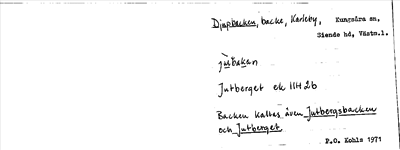 Djupbacken, backe, Karleby, Kungsåra sn,
Siende hd, Västm.l.
Jutberget ek 11H 2b
Backen kallas även Jutbergsbacken
och Jutberget.
P.O. Kohls 1971